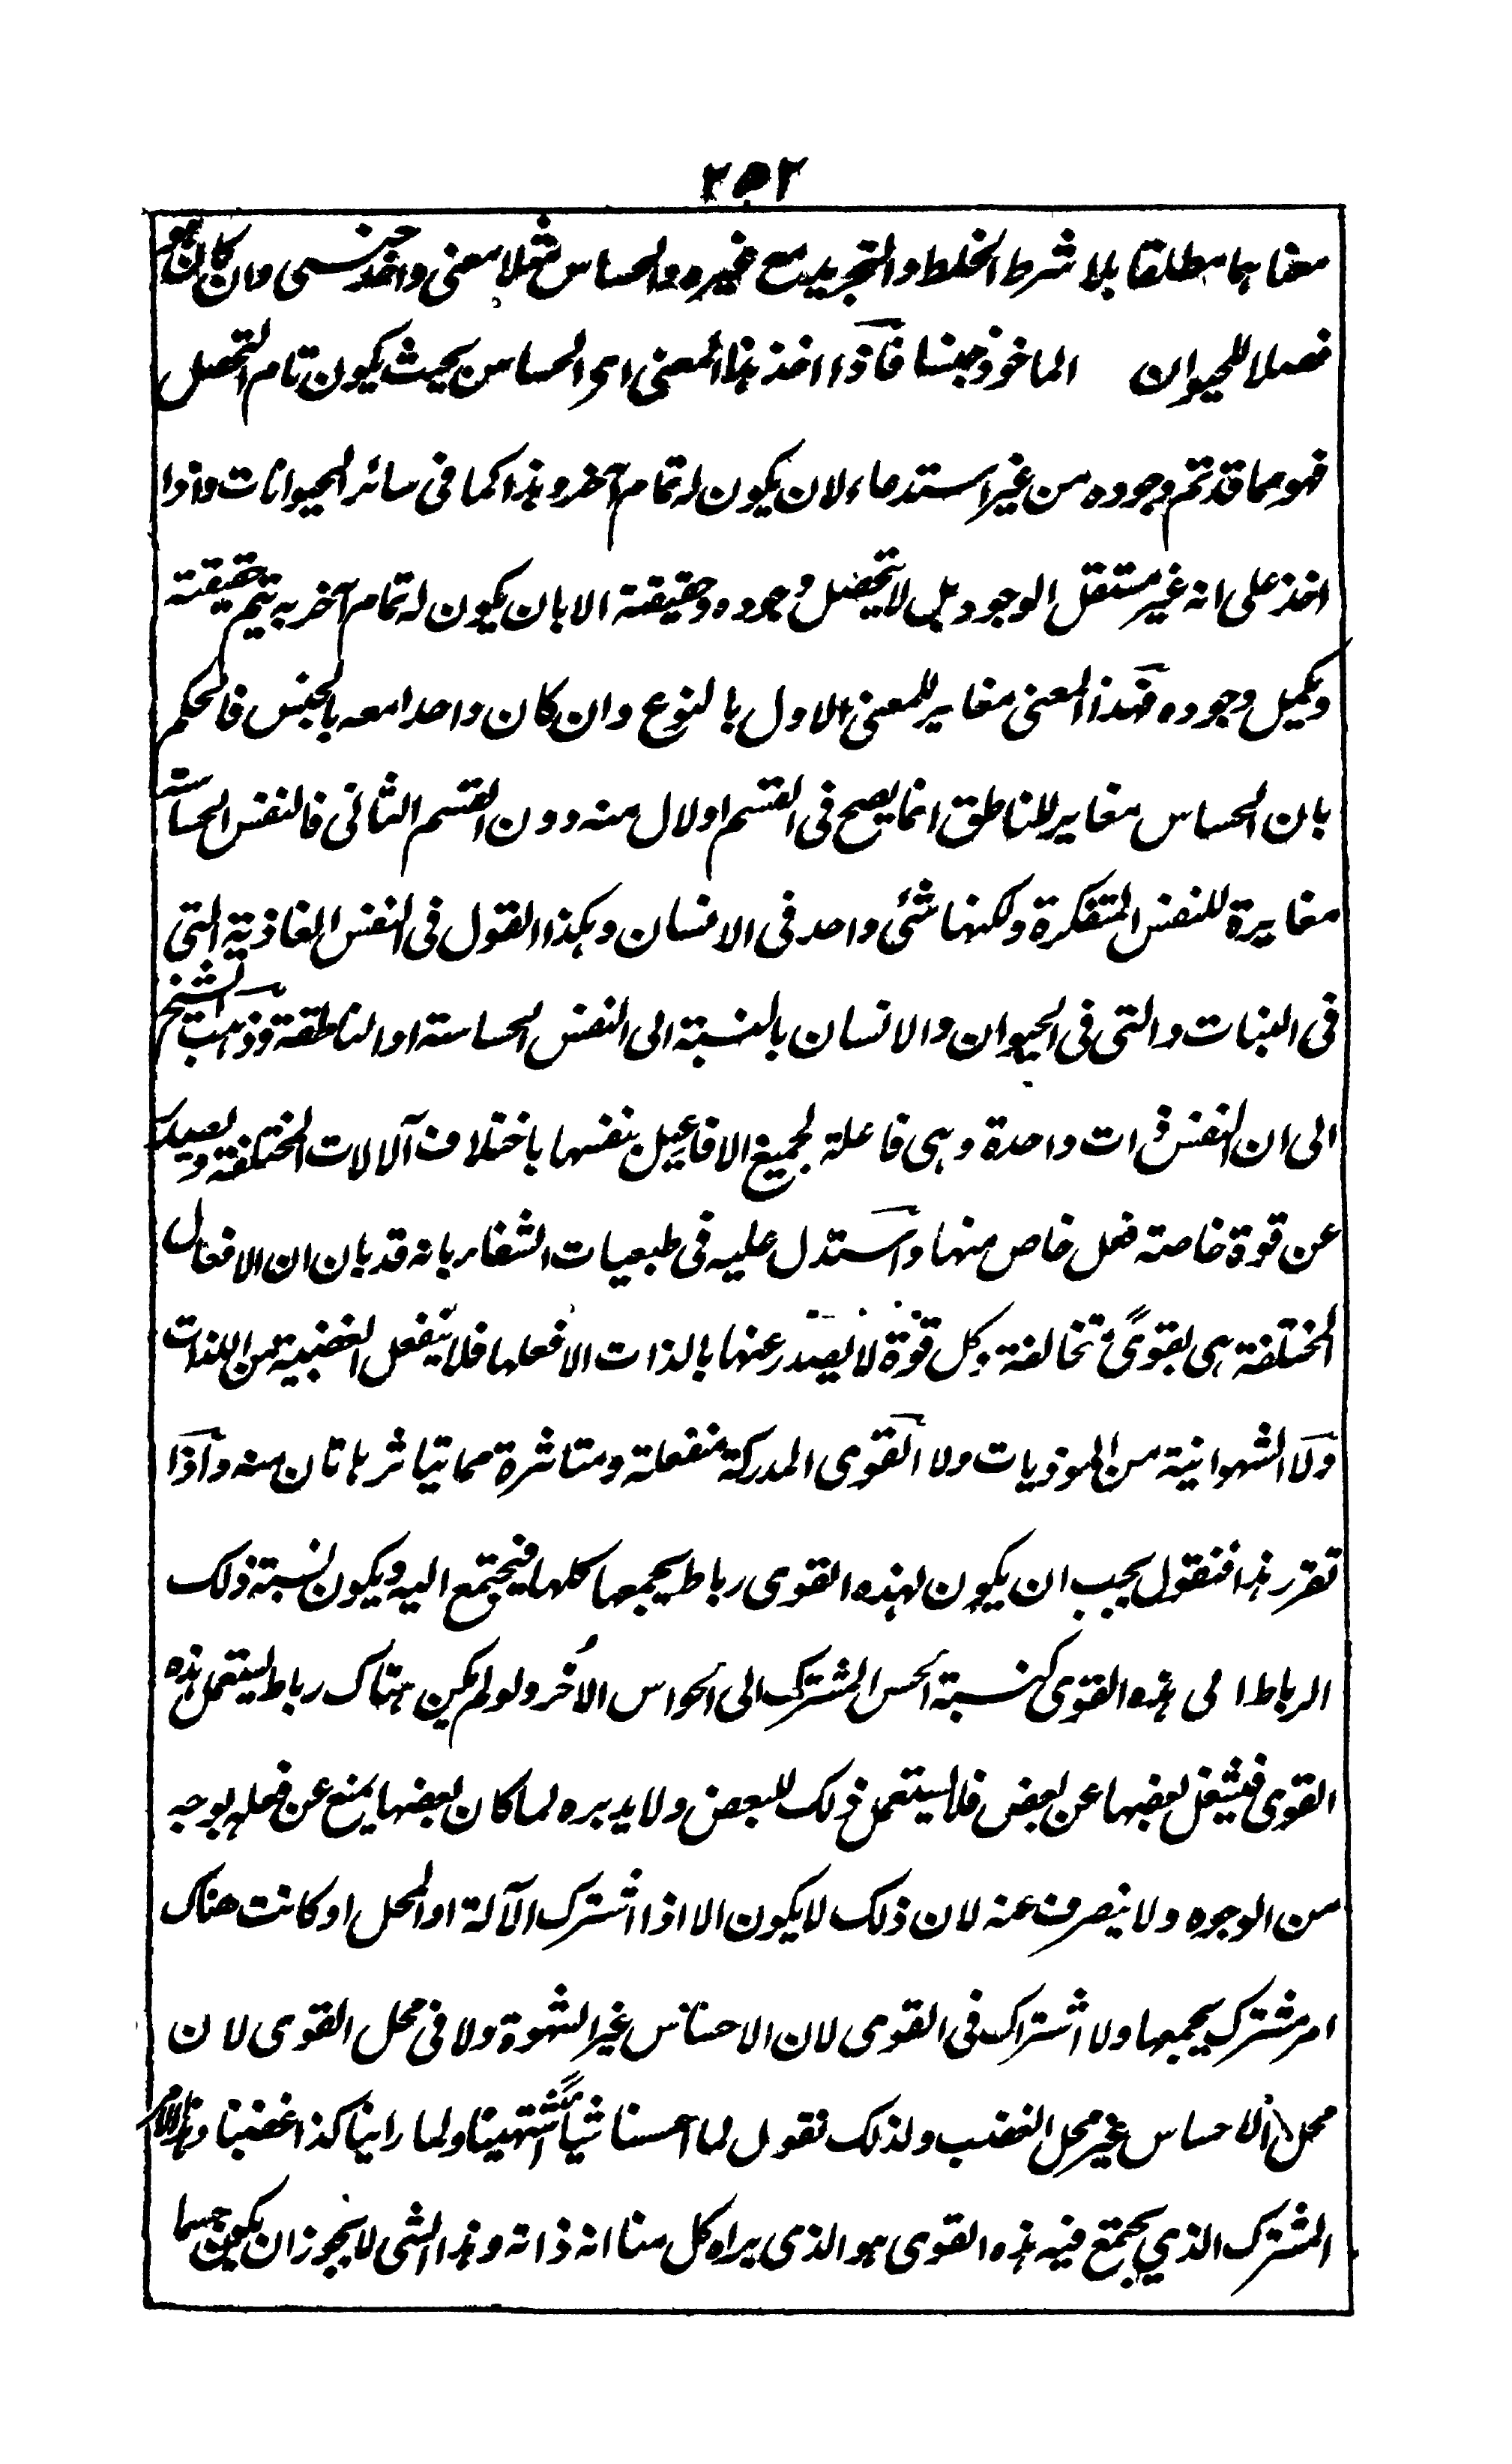 ٢٥٢
معناهما مطلقا بلا شرط الخلط والتجريد مع غيره والحساس مثلا معنى واحد جنسى وان كان مع
فصلا للحيوان الماخوذ جنسا فاذا اخذ هذا المعنى اى الحساس بحيث يكون تام التحصل
فهو مما قد تم وجوده من غير استدعاء لان يكون له تمام آخر وهذا كما فى سائر الحيوانات واذا
اخذ على انه غير مستقل الوجود بل لا يتحصل وجوده وحقيقته الا بان يكون له تمام آخر به يتم حقيقته
ويكمل وجوده فهذا المعنى مغاير للمعنى الاول بالنوع وان كان واحدا معه بالجنس فالحكم
بان الحساس مغاير للناطق انما يصح فى القسم اولال منه دون القسم الثانى فالنفس الحساسة
مغايرة للنفس المتفكرة ولكنها شئ واحد فى الانسان وهكذا القول فى النفس الغاذية التى
فى النبات والتى فى الحيوان والانسان بالنسبة الى النفس الحساسة او الناطقة وذهب الشيخ
الى ان النفس ذات واحدة وهى فاعلة لجميع الافاعيل بنفسها باختلاف آلالات المختلفة ويصدر
عن قوة خاصة فعل خاص منها واستدل عليه فى طبعيات الشفاء بانه قد بان ان الافعال
المختلفة هى بقوىً متخالفة وكل قوة لا يصدر عنها بالذات الا فعلها فلا ينفعل الغضبية من اللذات
ولا الشهوانية من الموذيات ولا القوى المدركة منفعلة ومتاثرة مما يتاثر هاتان منه واذا
تقرر هذا فنقول يجب ان يكون لهذه القوى رباط يجمعها كلها فيجتمع اليه ويكون نسبة ذلك
الرباط الى هذه القوى كنسبة الحس المشترك الى الحواس الاُخر ولو لم يكن هناك رباط يستعمل هذه
القوى فيشغل بعضها عن بعض فلا يستعمل ذلك للبعض ولا يدبره لما كان بعضها يمنع عن فعله بوجه
من الوجوه ولا ينصرف عنه لان ذلك لا يكون الا اذا اشترك الآلة او المحل او كانت هناك
امر مشترك يجمعها ولا اشتراك فى القوى لان الاحساس غير الشهوة ولا فى محل القوى لان
محل الاحساس غير محل الغضب ولذلك نقول لما احسسنا شيأً اشتهينا ولما راينا كذا غضبنا وهذا الامر
المشترك الذي يجتمع فيه هذه القوى هو الذى يراه كل منا انه ذاته وهذا الشى لا يجوز ان يكون جسما